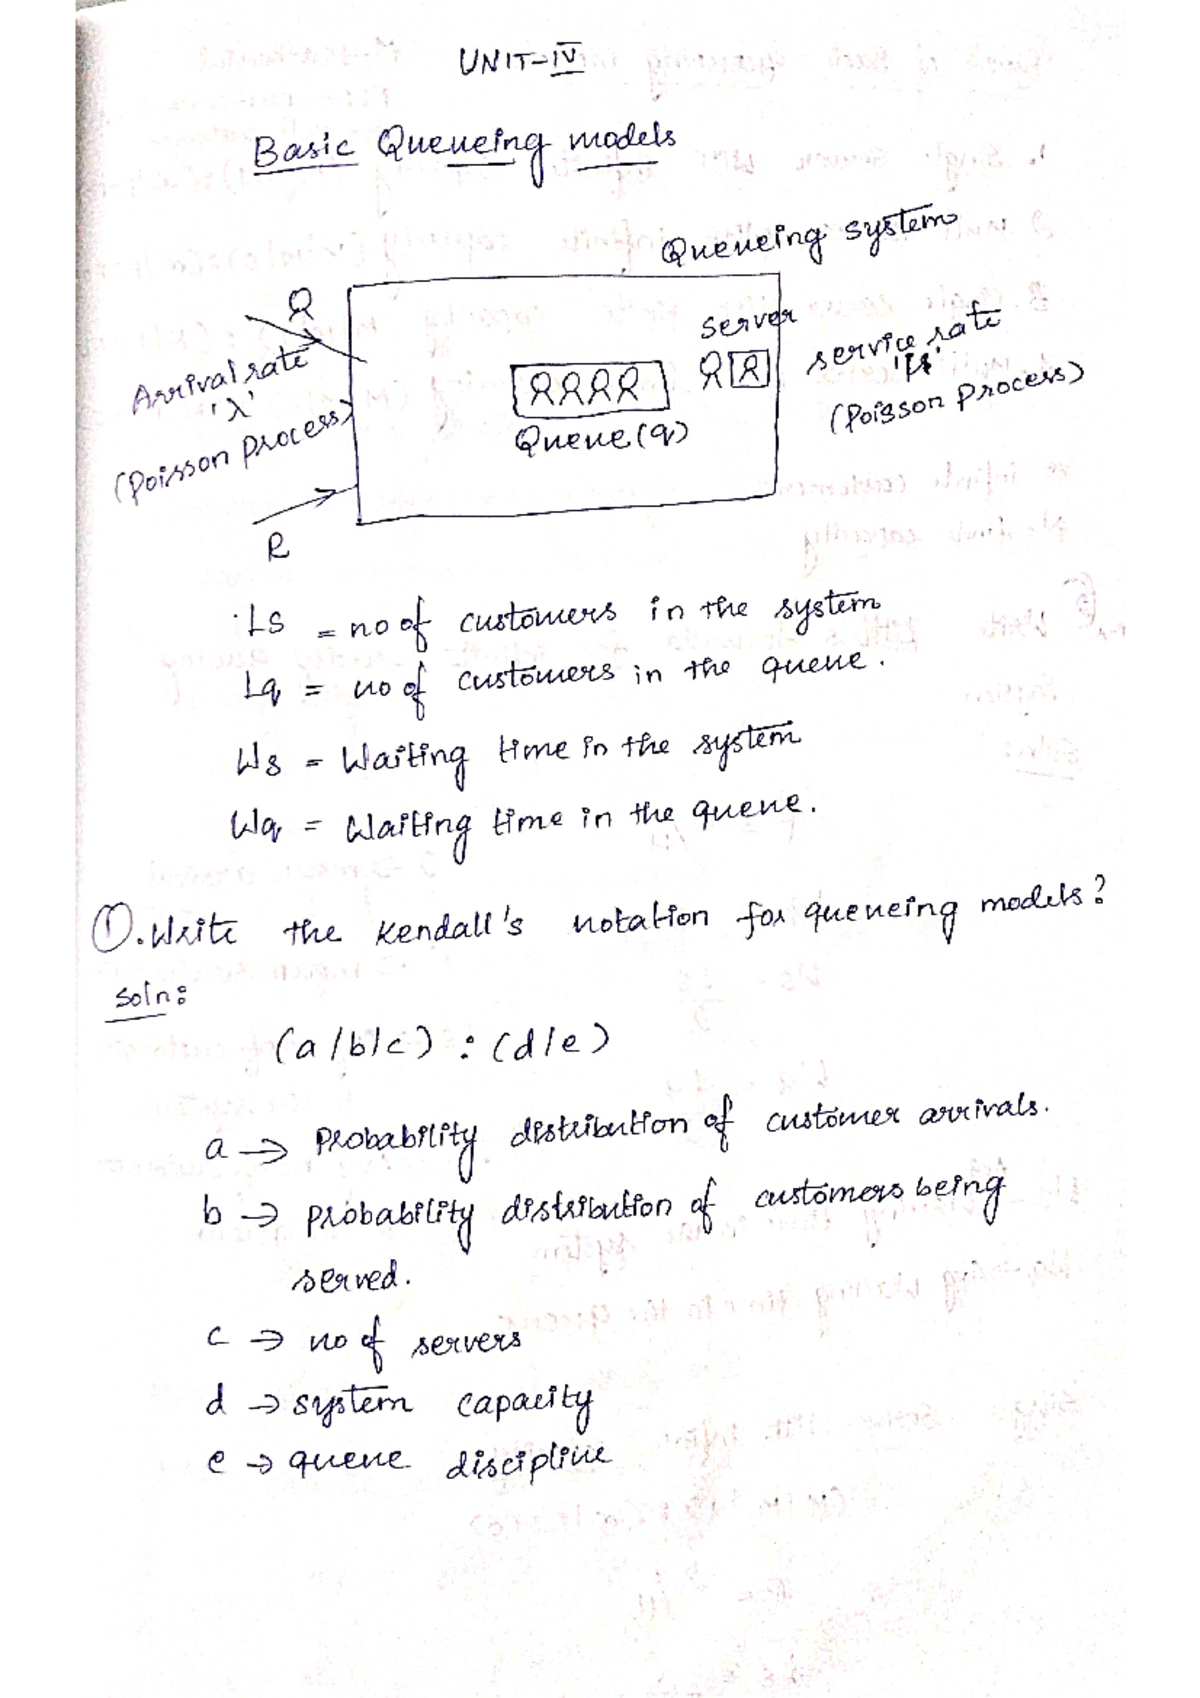 UNIT-IV
Basic Queueing models
Queueing system
Server
Arrival rate
'λ'
(Poisson Process)
service rate
'μ'
(Poisson Process)
Queue(q)
Ls = no of customers in the system
Lq = no of customers in the queue.
Ws = Waiting time in the system
Wq = Waiting time in the queue.
①. Write the Kendall's notation for queueing models?
Soln:
(a/b/c) : (d/e)
a → Probability distribution of customer arrivals.
b → probability distribution of customers being
served.
c → no of servers
d → system capacity
e → queue discipline